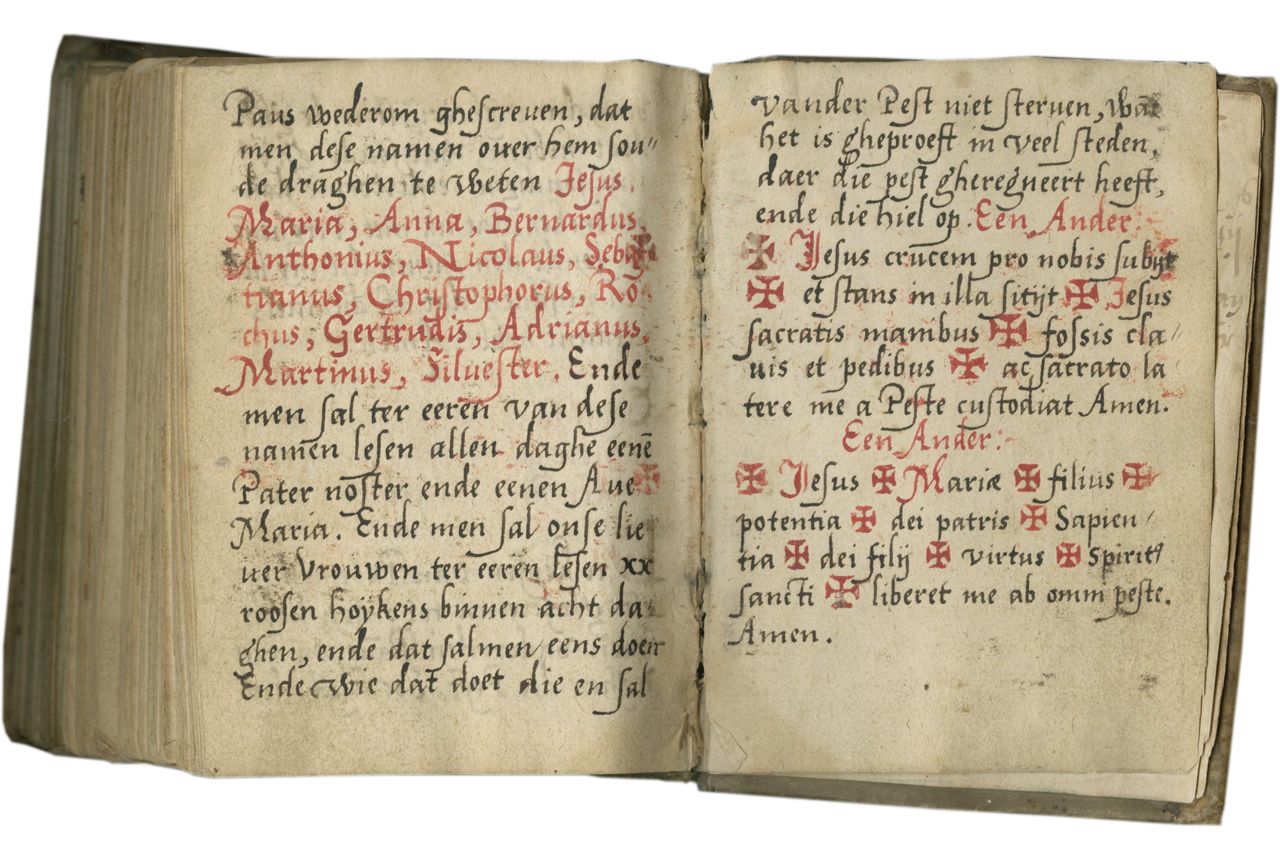 Paus wederom ghescreuen, dat
men dese namen ouer hem sou"
de draghen te weten Jesus,
Maria, Anna, Bernardus,
Anthonius, Nicolaus, Seba
tianus, Christophorus, Ro
chus, Gertrudis, Adrianus,
Martinus, Siluester. Ende
men sal ter eeren van dese
namen lesen allen daghe eenē
Pater noster ende eenen Aue
Maria. Ende men sal onse lie
uer Vrouwen ter eeren lesen xx
roosen hoÿkens binnen acht da
ghen, ende dat salmen eens doen
Ende wie dat doet die en sal
vander Pest niet steruen, wāt
het is gheproeft in veel steden,
daer die pest gheregneert heeft,
ende die hiel op. Een Ander:
✠ Jesus crucem pro nobis subijt
✠ et stans in illa sitijt ✠ Jesus
sacratis manibus ✠ fossis cla/
uis et pedibus ✠ ac sacrato la
tere me a Peste custodiat Amen.
Een Ander:
✠ Jesus ✠ Mariæ ✠ filius ✠
potentia ✠ dei patris ✠ Sapien/
tia ✠ dei filij ✠ virtus ✠ Spirit⁹
sancti ✠ liberet me ab omni peste.
Amen.